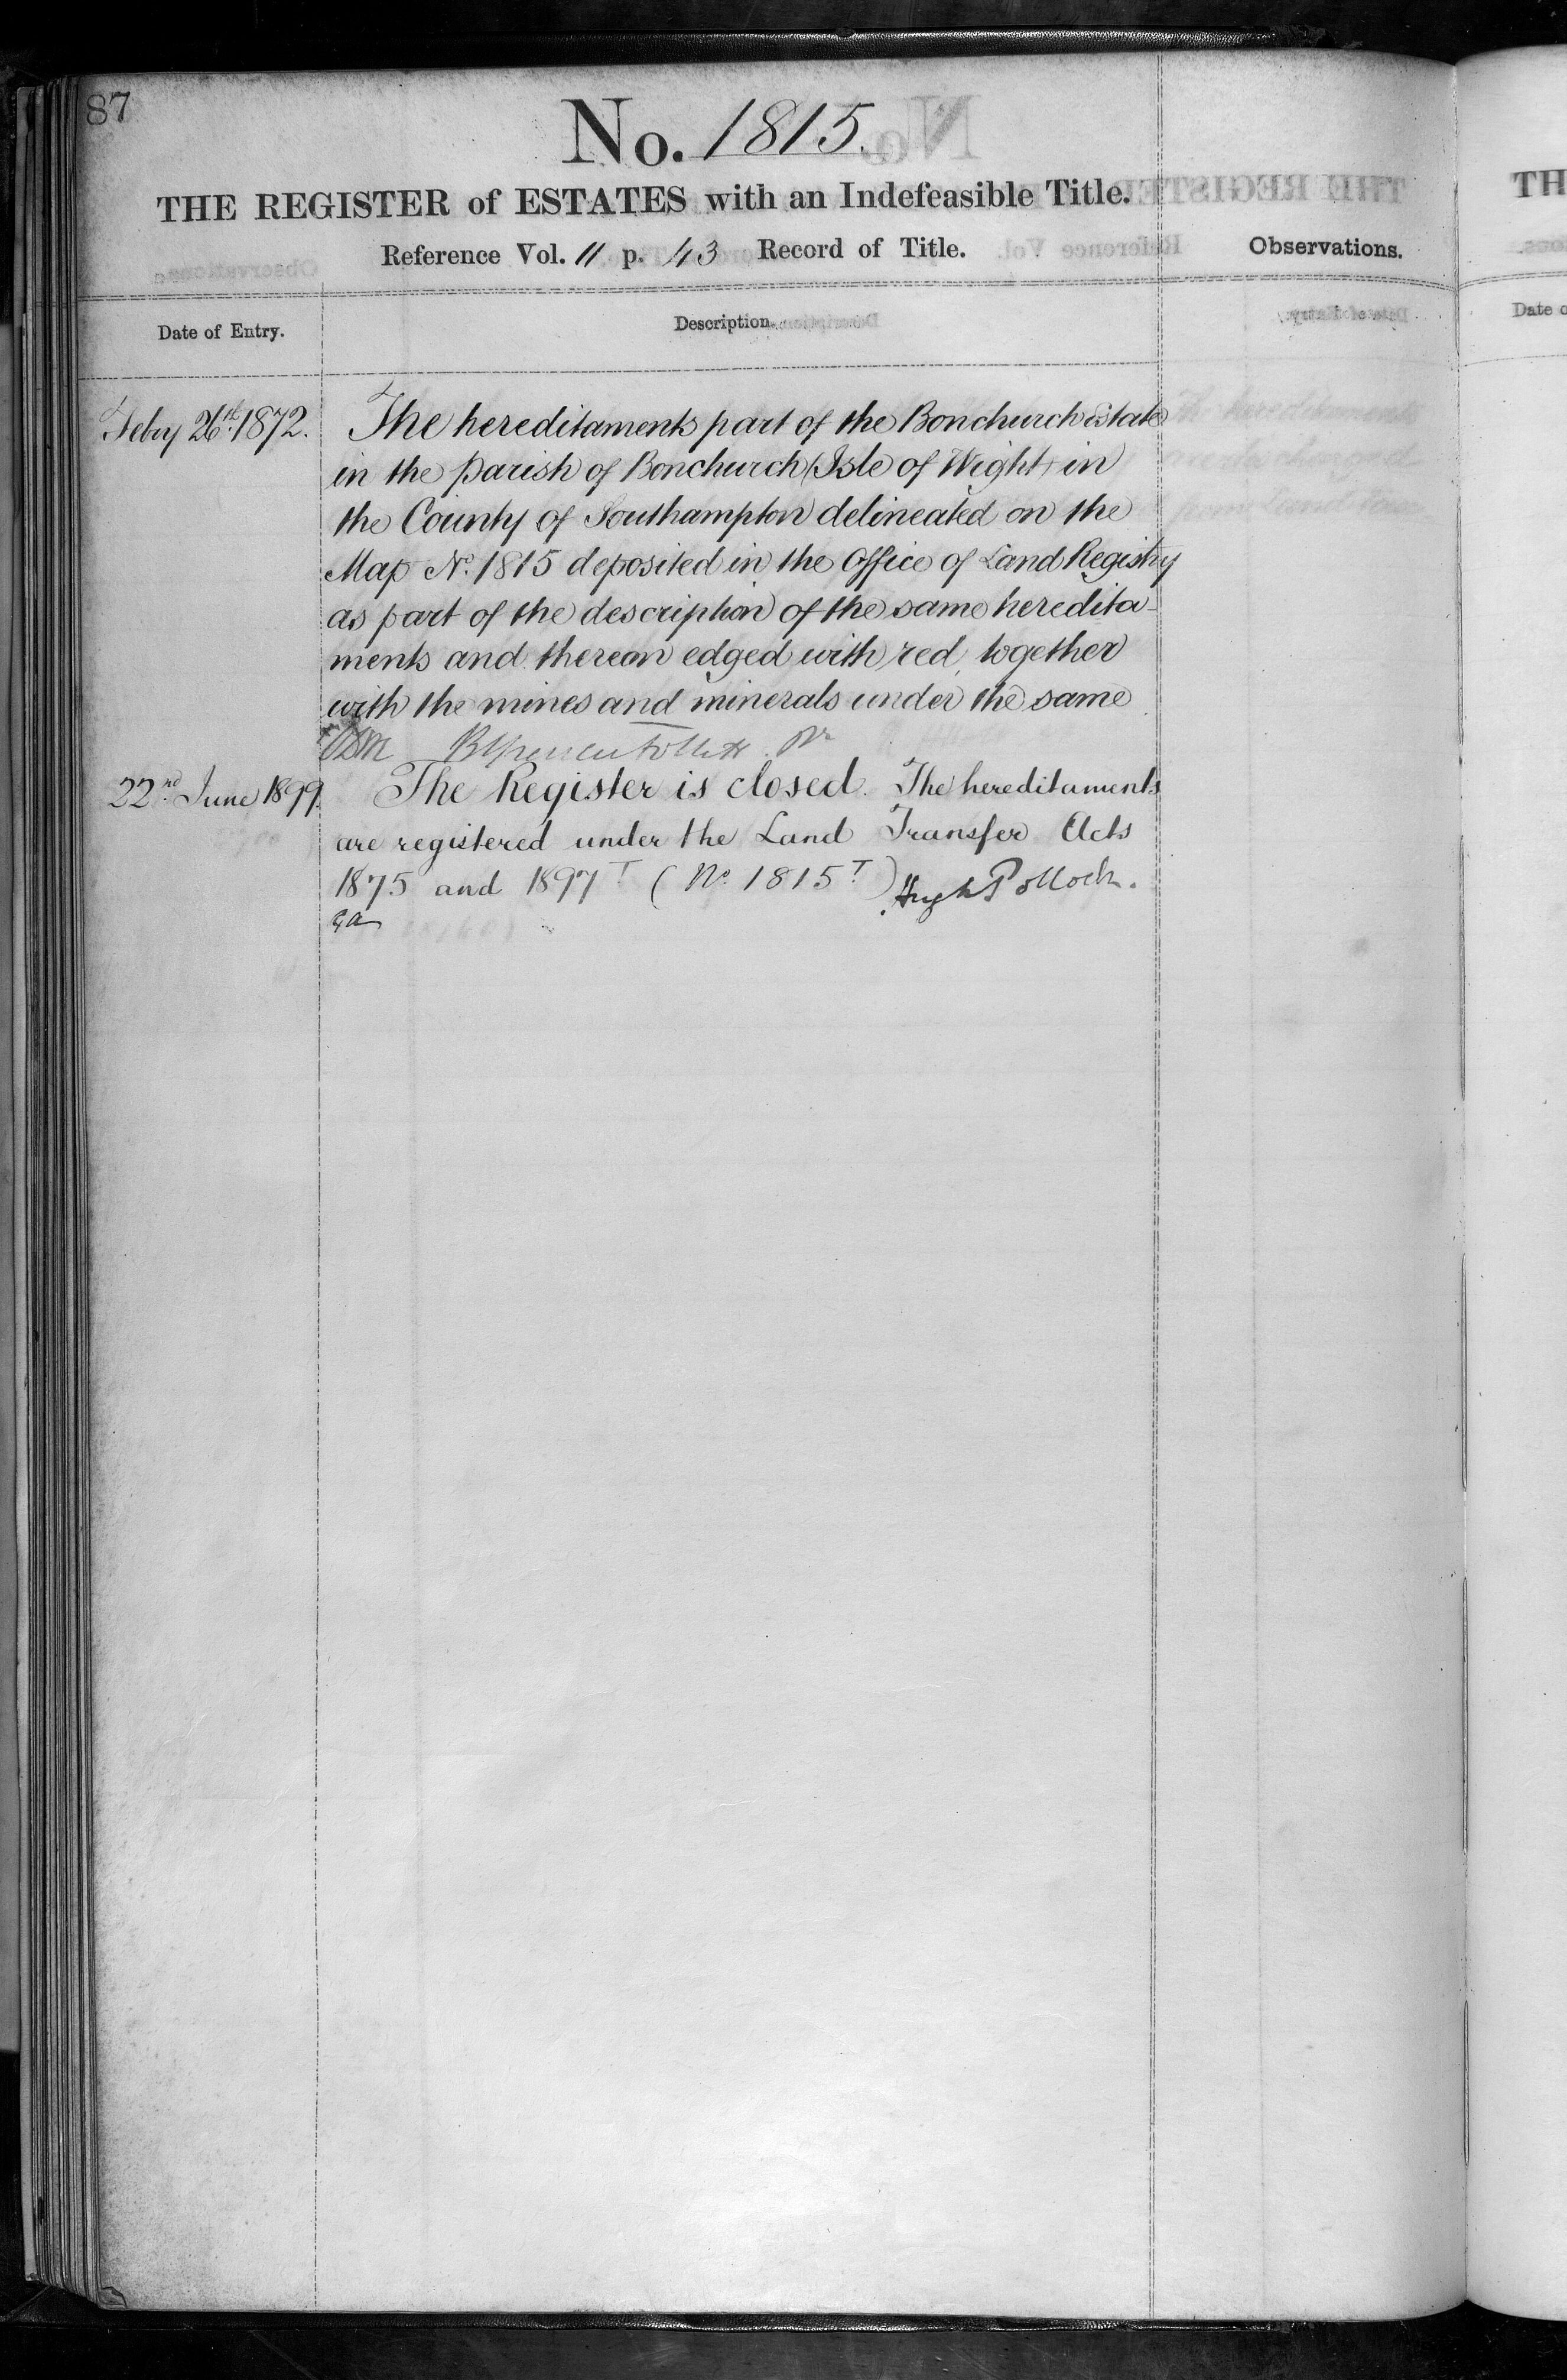 87
No. 1815.
THE REGISTER of ESTATES with an Indefeasible Title.
Reference Vol. 11 p. 43 Record of Title.
Observations.
Date of Entry.
Description.
Feby 26th 1872.
The hereditaments part of the Bonchurch Estate
in the parish of Bonchurch (Isle of Wight) in
the County of Southampton delineated on the
Map No. 1815 deposited in the Office of Land Registry
as part of the description of the same heredita-
ments and thereon edged with red, together
with the mines and minerals under the same
22nd June 1899.
The Register is closed. The hereditaments
are registered under the Land Transfer Acts
1875 and 1897 T (No. 1815 T) Hugh Pollock.
TH
Date o